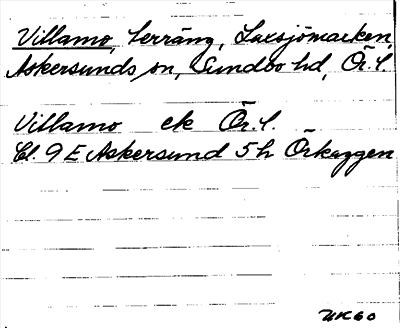 Villamo, terräng, Laxsjömarken,
Askersunds sn, Sundbo hd, Ör. l.
Villamo ek Ör. l.
Bl. 9 E Askersund 5 h Örkaggen
UK60